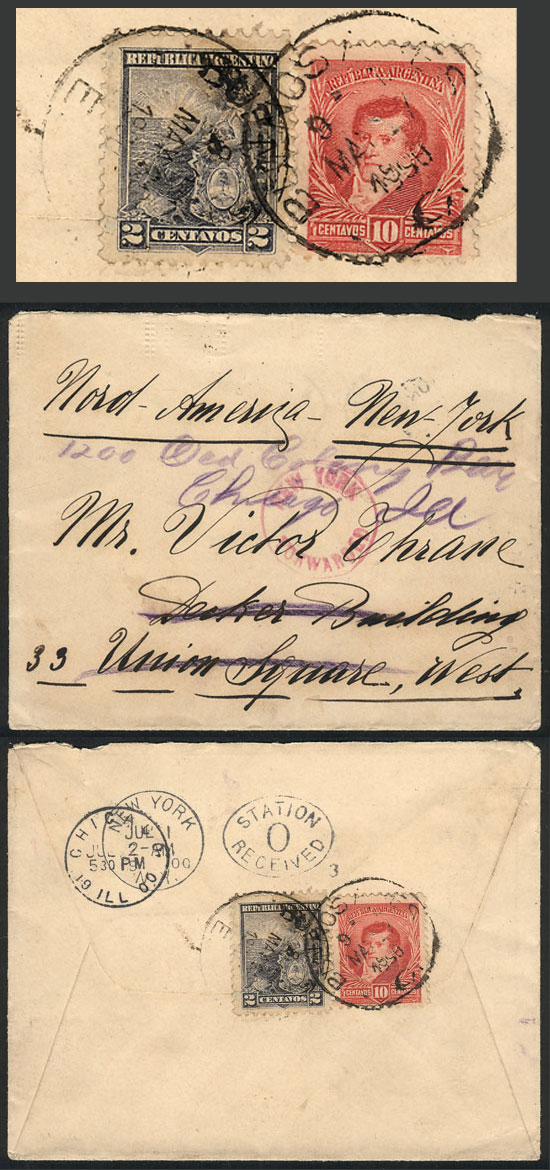 REPUBLICA ARGENTINA
2 CENTAVOS 2
REPUBLICA ARGENTINA
CENTAVOS 10 CENTAVOS
BUENOS
Nord-America- New-York
1200 Old Colony
Chicago Ill
NEW YORK
FORWARDED
Mr. Victor Thrane
Decker Building
33 Union Square, West.
NEW YORK
JUL 1
CHIC
JUL 2
530 PM
ILL
STATION
O
RECEIVED
3
REPUBLICA ARGENTINA
2 CENTAVOS 2
REPUBLICA ARGENTINA
CENTAVOS 10 CENTAVOS
BUENOS